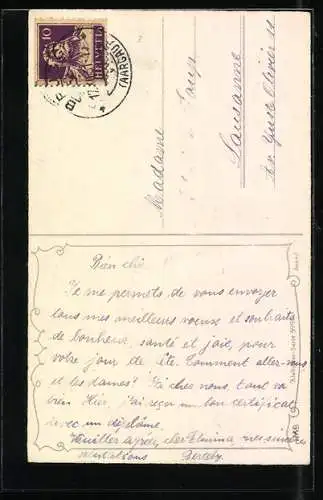 10
HELVETIA
(AARGAU)
Madame
Lausanne
Av. Juste Olivier 11
Bien chè
Je me permets de vous envoyer
tous mes meilleurs voeux et souhaits
de bonheur, santé et joie, pour
votre jour de fête. Comment allez-vous
et les dames? Ici chez nous, tout va
bien Hier, j'ai reçu un bon certificat
avec un diplôme.
Veuillez agréer, cher
salutations